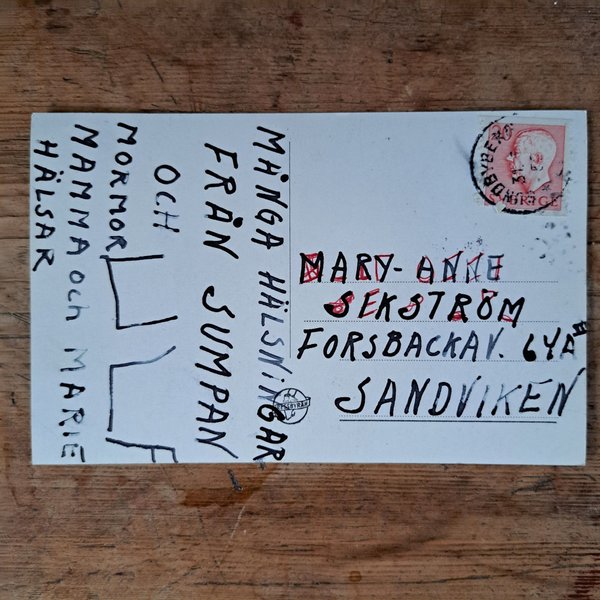 MÅNGA HÄLSNINGAR
FRÅN SUMPAN
OCH
MORMOR ULF
MAMMA OCH MARIE
HÄLSAR
SUNDBYBERG
SVERIGE
MARY-ANNE
SEKSTRÖM
FORSBACKAV. 64A
SANDVIKEN